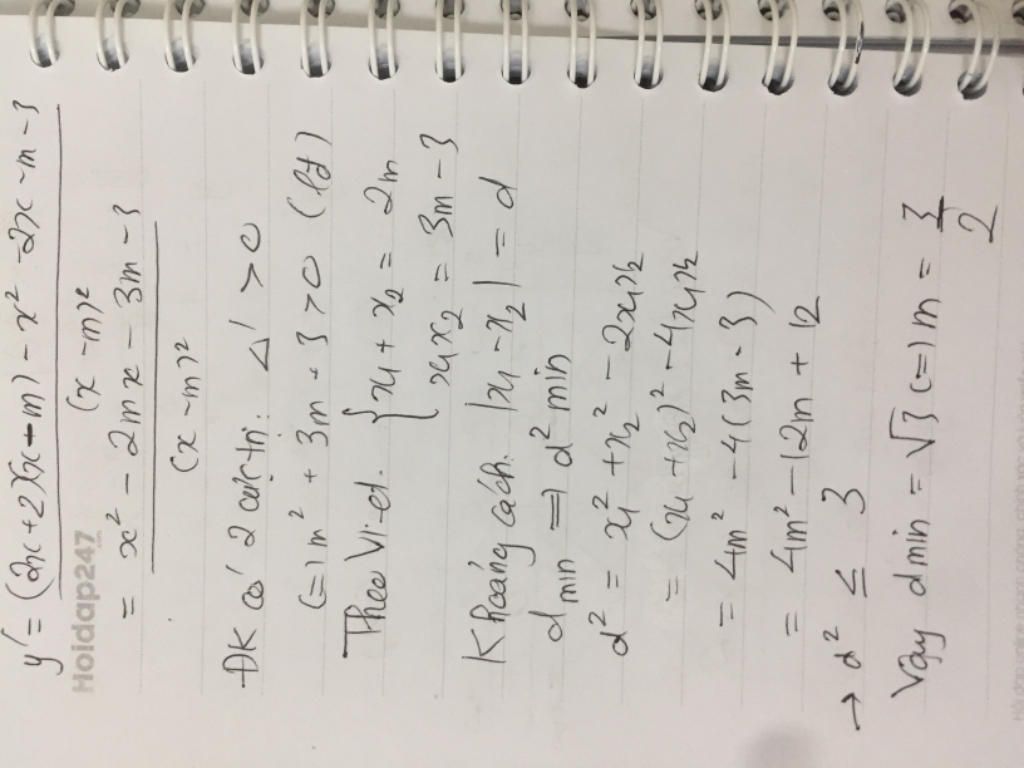 y' = (2x+2)(x-m) - x² - 2x - m - 3
(x-m)²
Hoidap247
.com
= x² - 2mx - 3m - 3
(x-m)²
ĐK có 2 cực trị: Δ' > 0
(=) m² + 3m + 3 > 0 (lđ)
Theo Vi-et. { x₁ + x₂ = 2m
x₁x₂ = 3m - 3
Khoảng cách. |x₁ - x₂| = d
d min => d² min
d² = x₁² + x₂² - 2x₁x₂
= (x₁ + x₂)² - 4x₁x₂
= 4m² - 4(3m - 3)
= 4m² - 12m + 12
→ d² ≤ 3
Vậy d min = √3 (=) m = 3/2